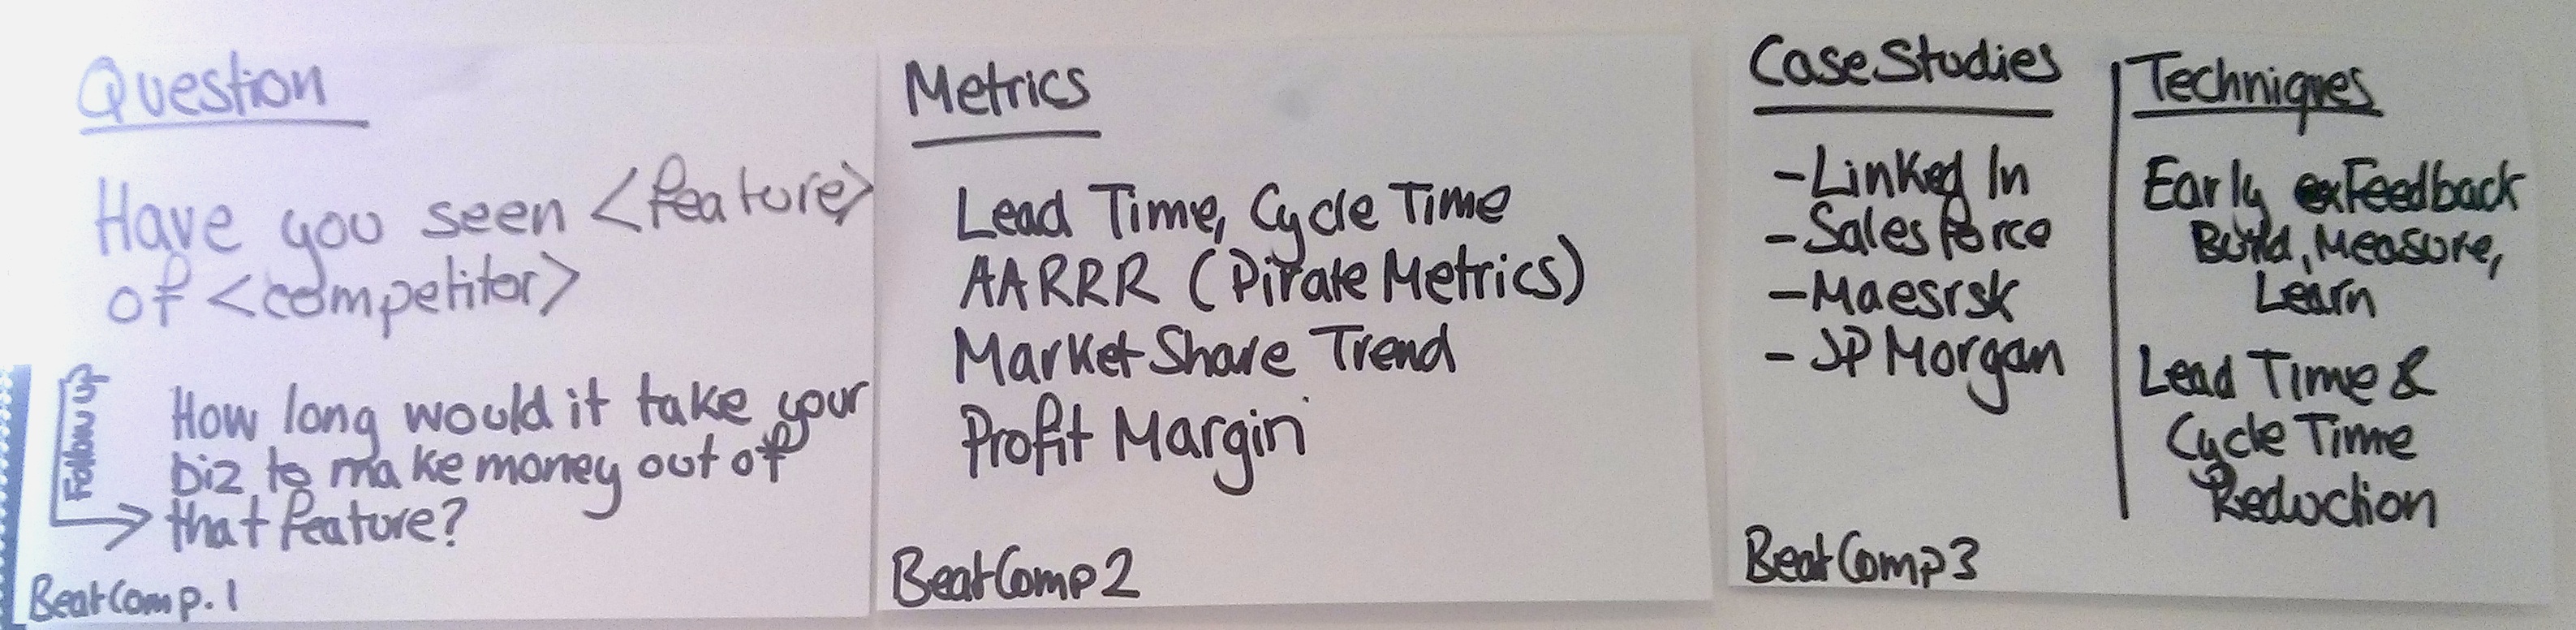 Question
Have you seen <feature>
of <competitor>
Follow up
How long would it take your
biz to make money out of
that feature?
BeatComp.1
Metrics
Lead Time, Cycle Time
AARRR (Pirate Metrics)
Market Share Trend
Profit Margin
BeatComp2
Case Studies
-Linked In
-Sales force
-Maesrsk
-JP Morgan
BeatComp3
Techniques
Early Feedback
Build, Measure,
Learn
Lead Time &
Cycle Time
Reduction